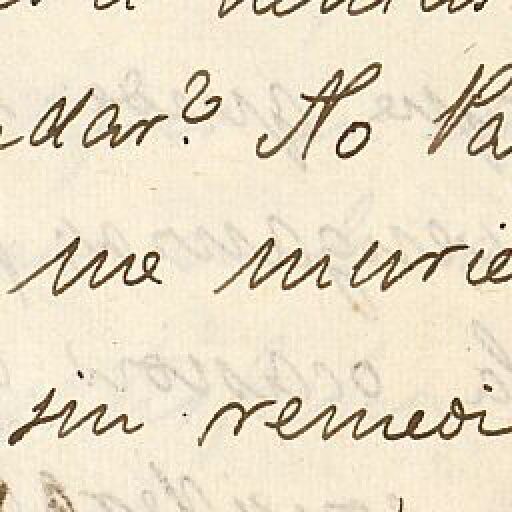 dar? No Pa
me murie
sin remedi